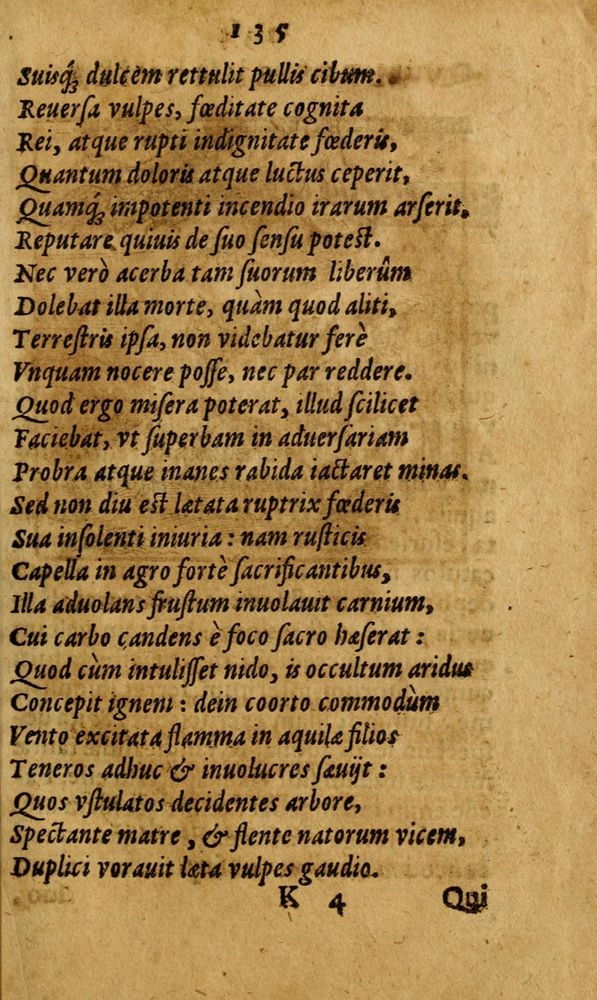 135
Suisq́ꝫ dulcem rettulit pullis cibum.
Reuerſa vulpes, fœditate cognita
Rei, atque rupti indignitate fœderis,
Quantum doloris atque luctus ceperit,
Quamq́ꝫ impotenti incendio irarum arſerit,
Reputare quiuis de ſuo ſenſu poteſt.
Nec verò acerba tam ſuorum liberûm
Dolebat illa morte, quàm quod aliti,
Terreſtris ipſa, non videbatur ferè
Vnquam nocere poſſe, nec par reddere.
Quod ergo miſera poterat, illud ſcilicet
Faciebat, vt ſuperbam in aduerſariam
Probra atque inanes rabida iactaret minas.
Sed non diu eſt lætata ruptrix fœderis
Sua inſolenti iniuria: nam ruſticis
Capella in agro fortè ſacrificantibus,
Illa aduolans fruſtum inuolauit carnium,
Cui carbo candens è foco ſacro hæſerat:
Quod cùm intuliſſet nido, is occultum aridus
Concepit ignem: dein coorto commodùm
Vento excitata flamma in aquilæ filios
Teneros adhuc & inuolucres ſæuijt:
Quos vſtulatos decidentes arbore,
Spectante matre, & flente natorum vicem,
Duplici vorauit læta vulpes gaudio.
K 4 Qui